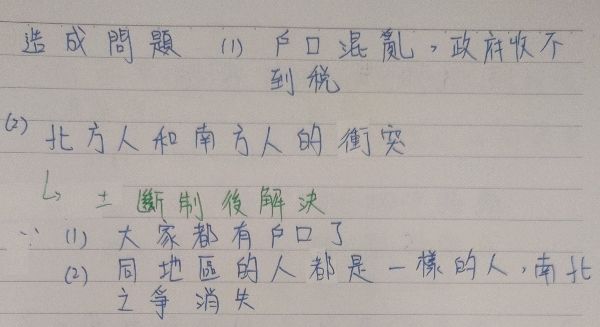 造成問題 (1) 戶口混亂，政府收不
到稅
(2) 北方人和南方人的衝突
↳ 土斷制後解決
∵ (1) 大家都有戶口了
(2) 同地區的人都是一樣的人，南北
之爭消失